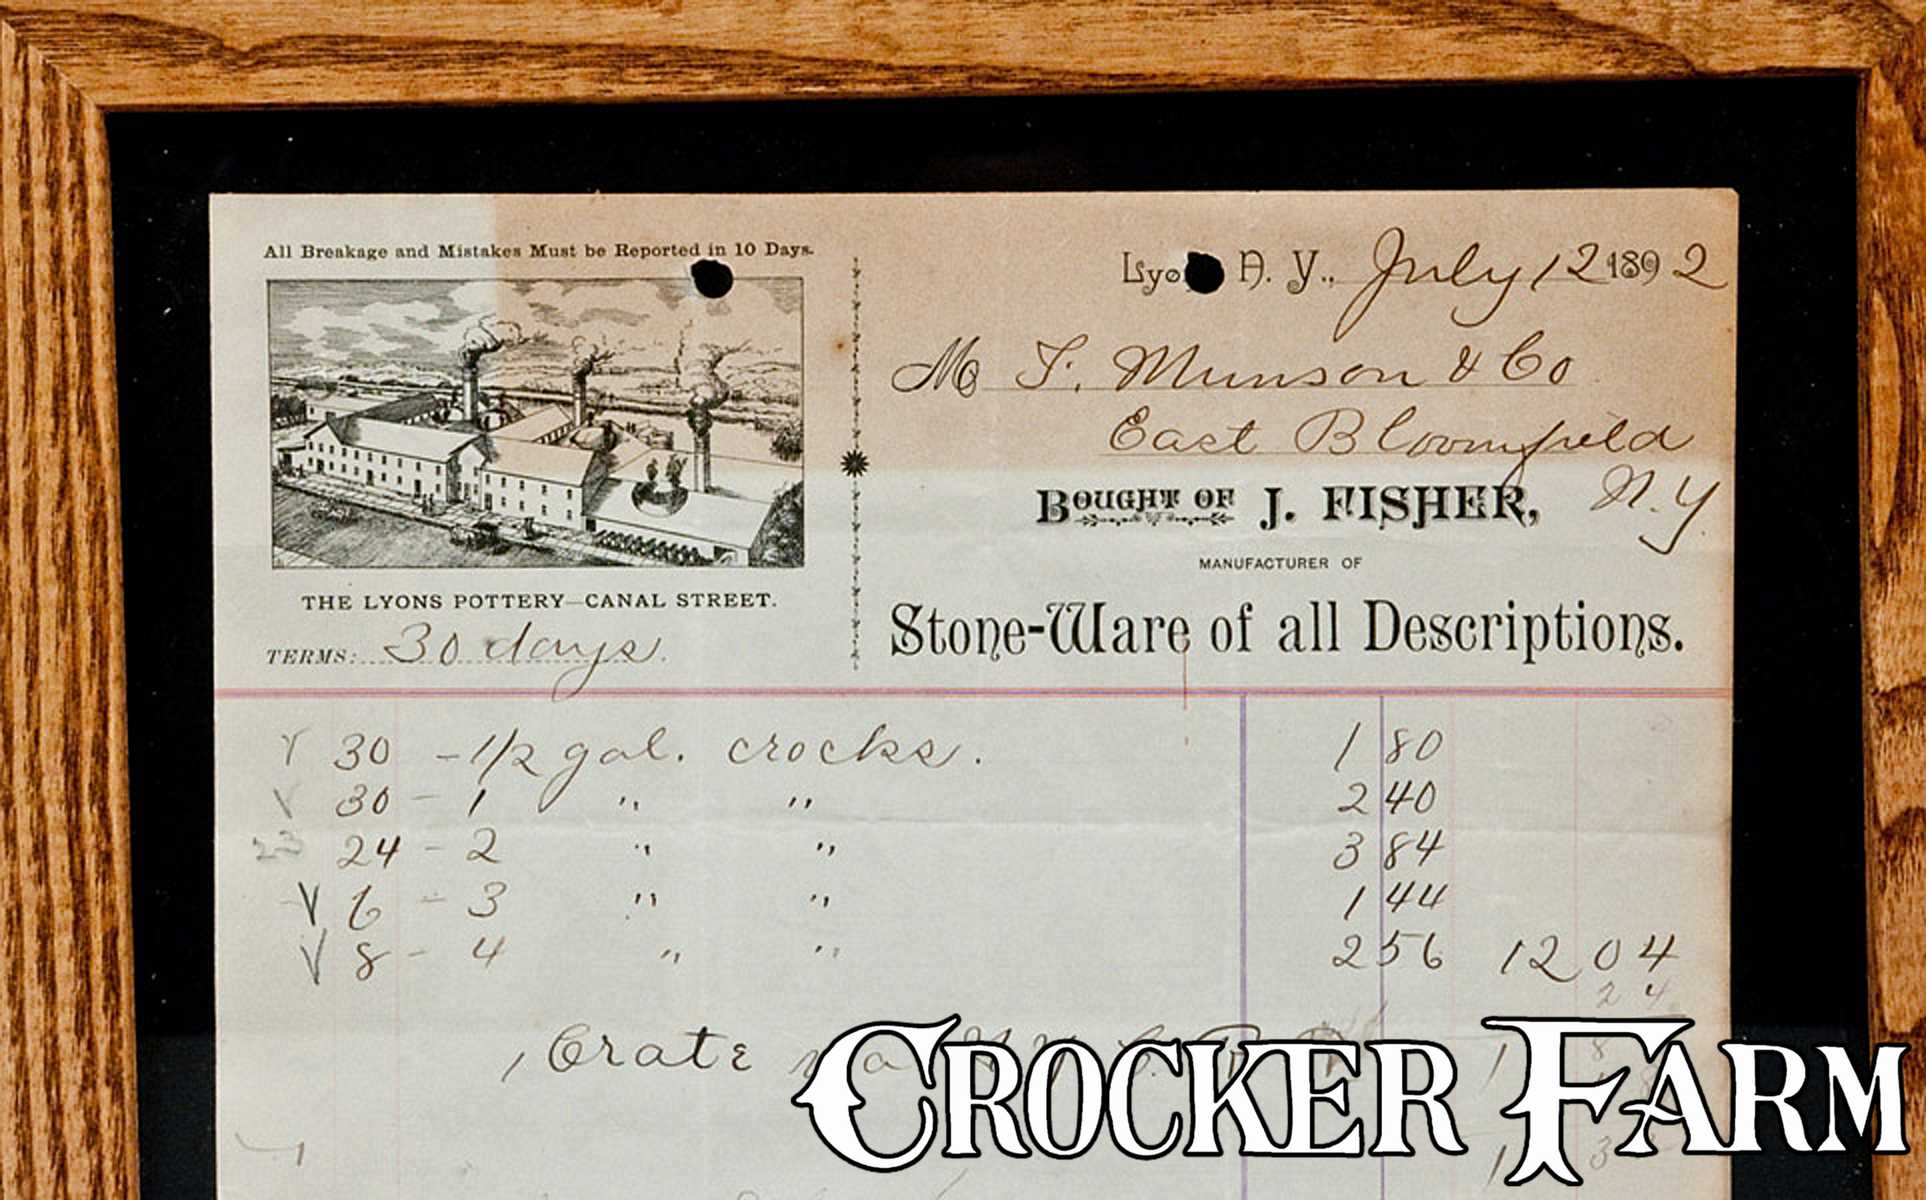 All Breakage and Mistakes Must be Reported in 10 Days.
Lyo N. Y., July 12 1892
M F. Munson & Co
East Bloomfield
N.Y.
BOUGHT OF J. FISHER,
MANUFACTURER OF
Stone-Ware of all Descriptions.
THE LYONS POTTERY—CANAL STREET.
TERMS: 30 days.
30 - 1/2 gal. crocks. 1 80
30 - 1 " " 2 40
23 24 - 2 " " 3 84
6 - 3 " " 1 44
8 - 4 " " 2 56 12 04
24
1 Crate via N.Y.C.
CROCKER FARM